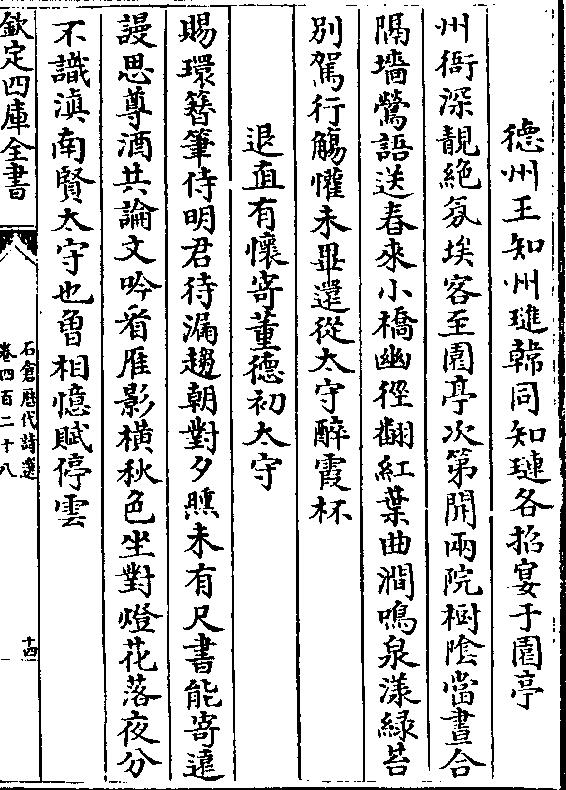 德州王知州璡韓同知璉各招宴于園亭
州衙深靚絶氛埃客至園亭次第開兩院樹陰當晝合
隔墻鶯語送春來小橋幽徑翻紅葉曲澗鳴泉漾緑苔
別駕行觴懽未畢還從太守醉霞杯
退直有懷寄董德初太守
賜環簮筆侍明君待漏趨朝對夕曛未有尺書能寄逺
謾思尊酒共論文吟看雁影橫秋色坐對燈花落夜分
不識滇南賢太守也曾相憶賦停雲
欽定四庫全書
石倉歴代詩選
卷四百二十八
十四